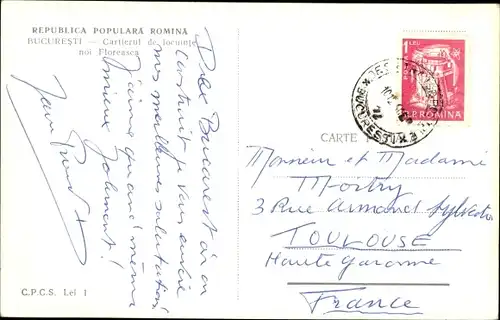 REPUBLICA POPULARĂ ROMÎNĂ
BUCUREŞTI — Cartierul de locuinţe
noi Floreasca
De Bucarest où on
construit je vous envoie
mes meilleures salutations
J'aime quand même
mieux
Jean
C.P.C.S. Lei 1
1 LEU
R.P.ROMINA
BUCUREŞTI
CARTE
Monsieur et Madame
Moitry
3 Rue Armand Sylvestre
TOULOUSE
Haute Garonne
France